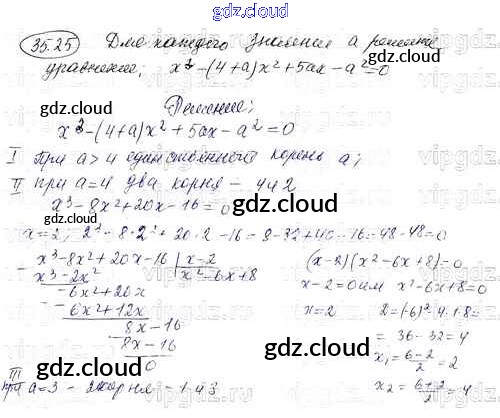 gdz.cloud
35.25 Для каждого значения а решите
уравнение; x³-(4+a)x²+5ax-a²=0
gdz.cloud
Решение;
x³-(4+a)x²+5ax-a²=0
gdz.cloud
I При a>4 единственного корень a;
II при a=4 два корня - 4 и 2
gdz.cloud
x³-8x²+20x-16=0
x=2; 2³-8·2²+20·2-16=8-32+40-16=48-48=0
x³-8x²+20x-16 | x-2
x³-2x² x²-6x+8
-6x²+20x
-6x²+12x
8x-16
8x-16
0
(x-2)(x²-6x+8)=0
x-2=0 или x²-6x+8=0
x=2 D=(-6)²-4·1·8=
= 36-32=4
x₁=6-2/2=2
x₂=6+2/2=4
gdz.cloud
III
при a=3 - 2 корня - 1 и 3
gdz.cloud